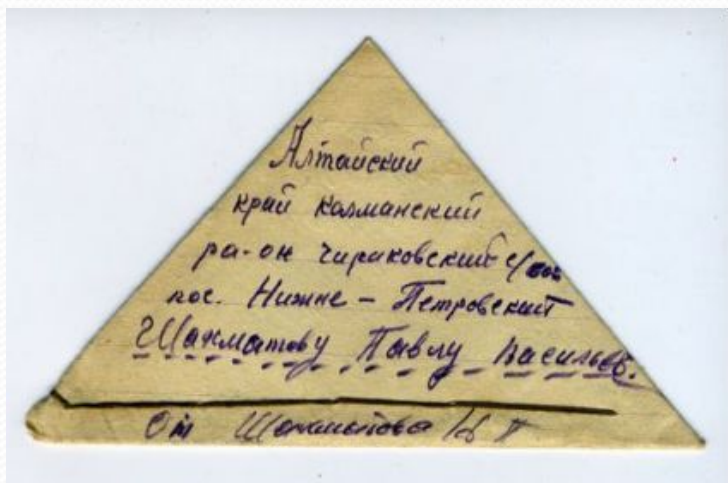 Алтайский
край калманский
ра-он чириковский с/сов
пос. Нижне-Петровский
Шахматову Павлу Васильев.
От Шахматова